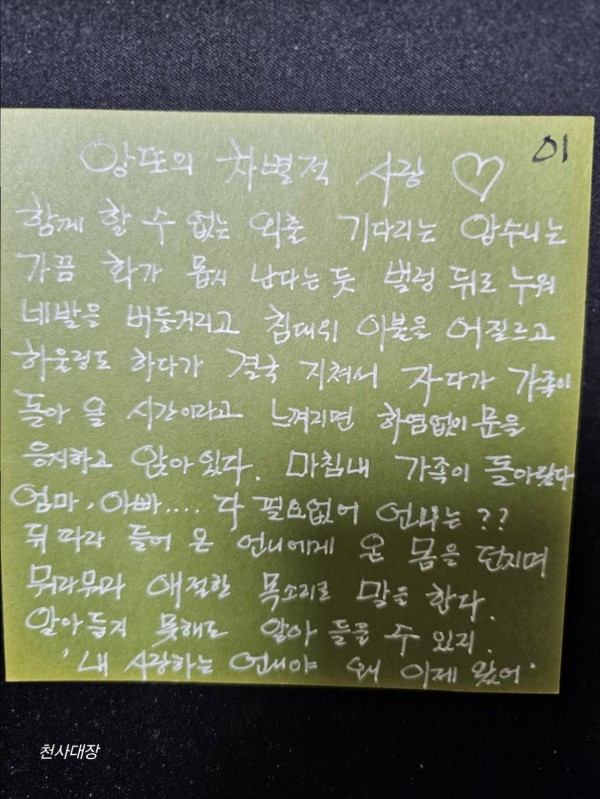 앙또의 차별적 사랑 ♡ 01
함께 할 수 없는 외출 기다리는 암수니는
가끔 화가 몹시 난다는 듯 벌렁 뒤로 누워
네발을 버둥거리고 침대위 이불을 어질르고
하울링도 하다가 결국 지쳐서 자다가 가족이
돌아 올 시간이라고 느껴지면 하염없이 문을
응시하고 앉아있다. 마침내 가족이 돌아왔다
엄마, 아빠.... 다 필요없어 언니는??
뒤 따라 들어 온 언니에게 온 몸을 던지며
뭐라뭐라 애절한 목소리로 말을 한다.
알아듣지 못해도 알아 들을 수 있지.
'내 사랑하는 언니야 왜 이제 왔어'
천사대장